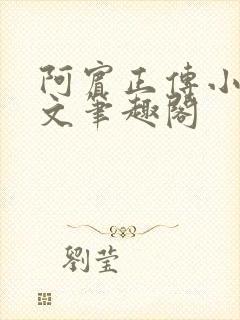 阿賓正傳小
文筆趣閣
劉瑩